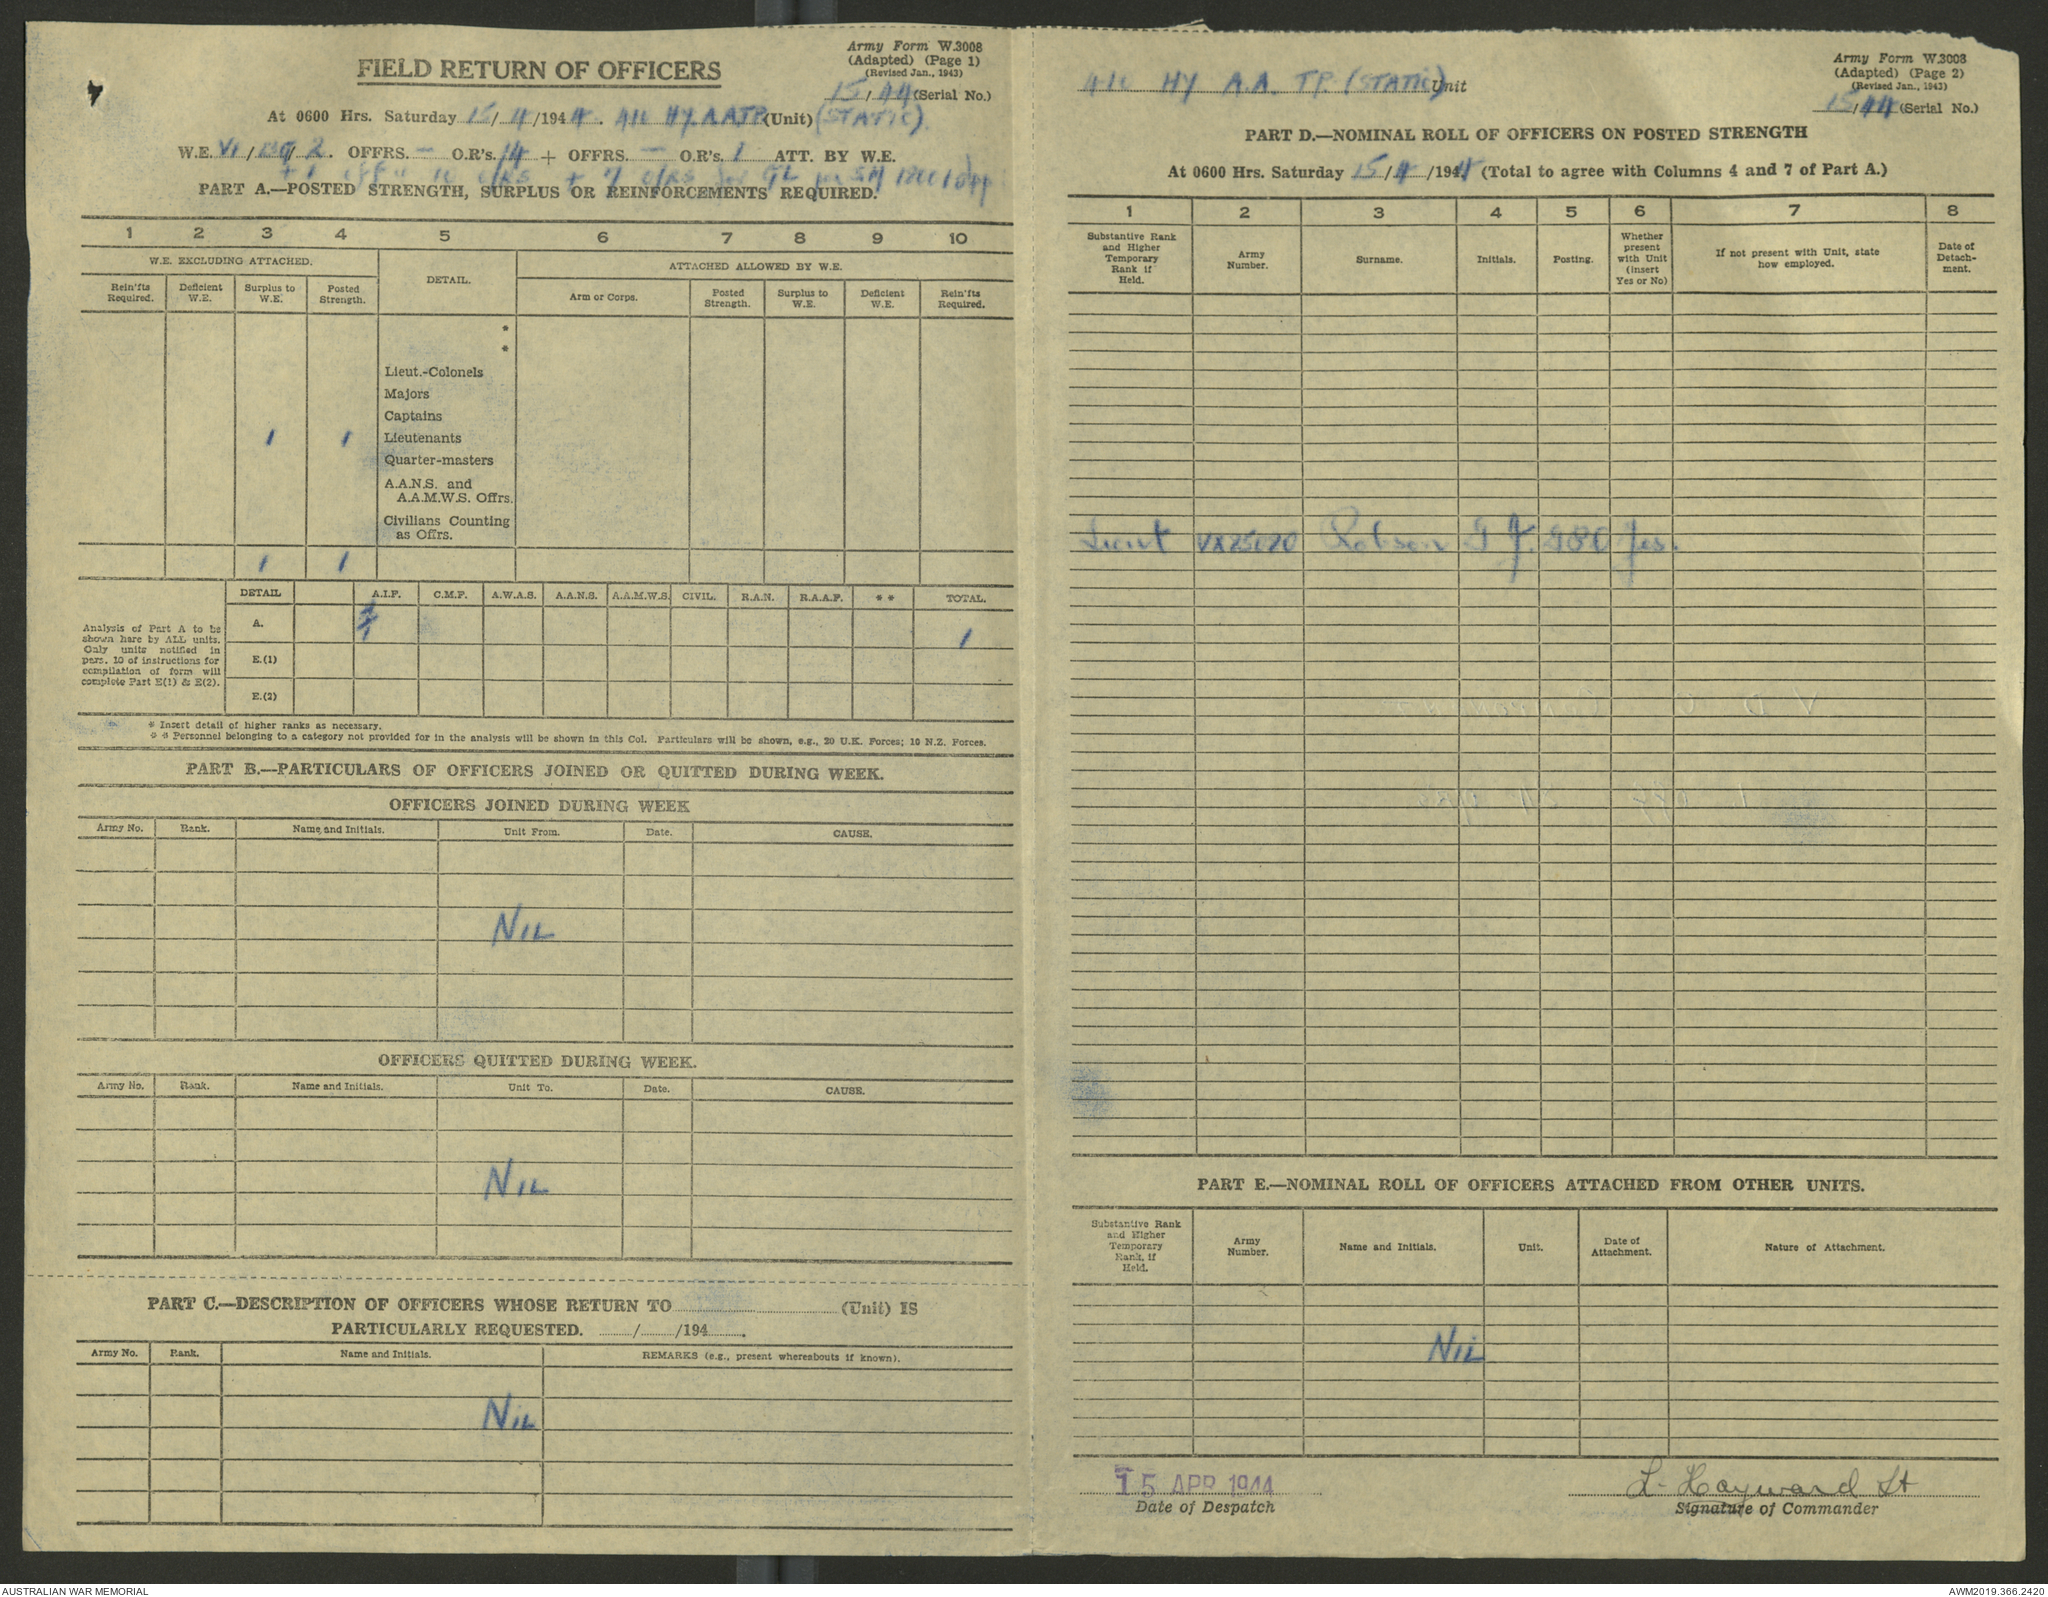 Army Form W.3008
(Adapted) (Page 1)
(Revised Jan., 1943)
FIELD RETURN OF OFFICERS
15/44 (Serial No.)
At 0600 Hrs. Saturday 15/4/1944. HY. A.A TP (Unit) (STATIC).
W.E. VI / / 2. OFFRS. — O.R's. 14 + OFFRS. — O.R's. 1 ATT. BY W.E.
PART A.—POSTED STRENGTH, SURPLUS OR REINFORCEMENTS REQUIRED.
1 2 3 4 5 6 7 8 9 10
W.E. EXCLUDING ATTACHED. DETAIL. ATTACHED ALLOWED BY W.E.
Rein'fts Required. Deficient W.E. Surplus to W.E. Posted Strength. Arm or Corps. Posted Strength. Surplus to W.E. Deficient W.E. Rein'fts Required.
*
*
Lieut.-Colonels
Majors
Captains
1 1 Lieutenants
Quarter-masters
A.A.N.S. and
A.A.M.W.S. Offrs.
Civilians Counting
as Offrs.
1 1
DETAIL A.I.F. C.M.F. A.W.A.S. A.A.N.S. A.A.M.W.S. CIVIL. R.A.N. R.A.A.F. * * TOTAL.
Analysis of Part A to be
shown here by ALL units.
Only units notified in
para. 10 of instructions for
compilation of form will
complete Part E(1) & E(2).
A. 1 1
E.(1)
E.(2)
* Insert detail of higher ranks as necessary.
* * Personnel belonging to a category not provided for in the analysis will be shown in this Col. Particulars will be shown, e.g., 20 U.K. Forces; 10 N.Z. Forces.
PART B.—PARTICULARS OF OFFICERS JOINED OR QUITTED DURING WEEK.
OFFICERS JOINED DURING WEEK
Army No. Rank. Name and Initials. Unit From. Date. CAUSE.
NIL
OFFICERS QUITTED DURING WEEK.
Army No. Rank. Name and Initials. Unit To. Date. CAUSE.
NIL
PART C.—DESCRIPTION OF OFFICERS WHOSE RETURN TO (Unit) IS
PARTICULARLY REQUESTED. / /194 .
Army No. Rank. Name and Initials. REMARKS (e.g., present whereabouts if known).
NIL
Army Form W.3008
(Adapted) (Page 2)
(Revised Jan., 1943)
HY A.A. TP. (STATIC) Unit
15/44 (Serial No.)
PART D.—NOMINAL ROLL OF OFFICERS ON POSTED STRENGTH
At 0600 Hrs. Saturday 15/4/1944 (Total to agree with Columns 4 and 7 of Part A.)
1 2 3 4 5 6 7 8
Substantive Rank and Higher Temporary Rank if Held. Army Number. Surname. Initials. Posting. Whether present with Unit (insert Yes or No) If not present with Unit, state how employed. Date of Detach-ment.
Lieut Robson Yes.
PART E.—NOMINAL ROLL OF OFFICERS ATTACHED FROM OTHER UNITS.
Substantive Rank and Higher Temporary Rank, if Held. Army Number. Name and Initials. Unit. Date of Attachment. Nature of Attachment.
NIL
15 APR 1944
Date of Despatch
L. Hayward Lt
Signature of Commander
AUSTRALIAN WAR MEMORIAL
AWM2019.366.2420